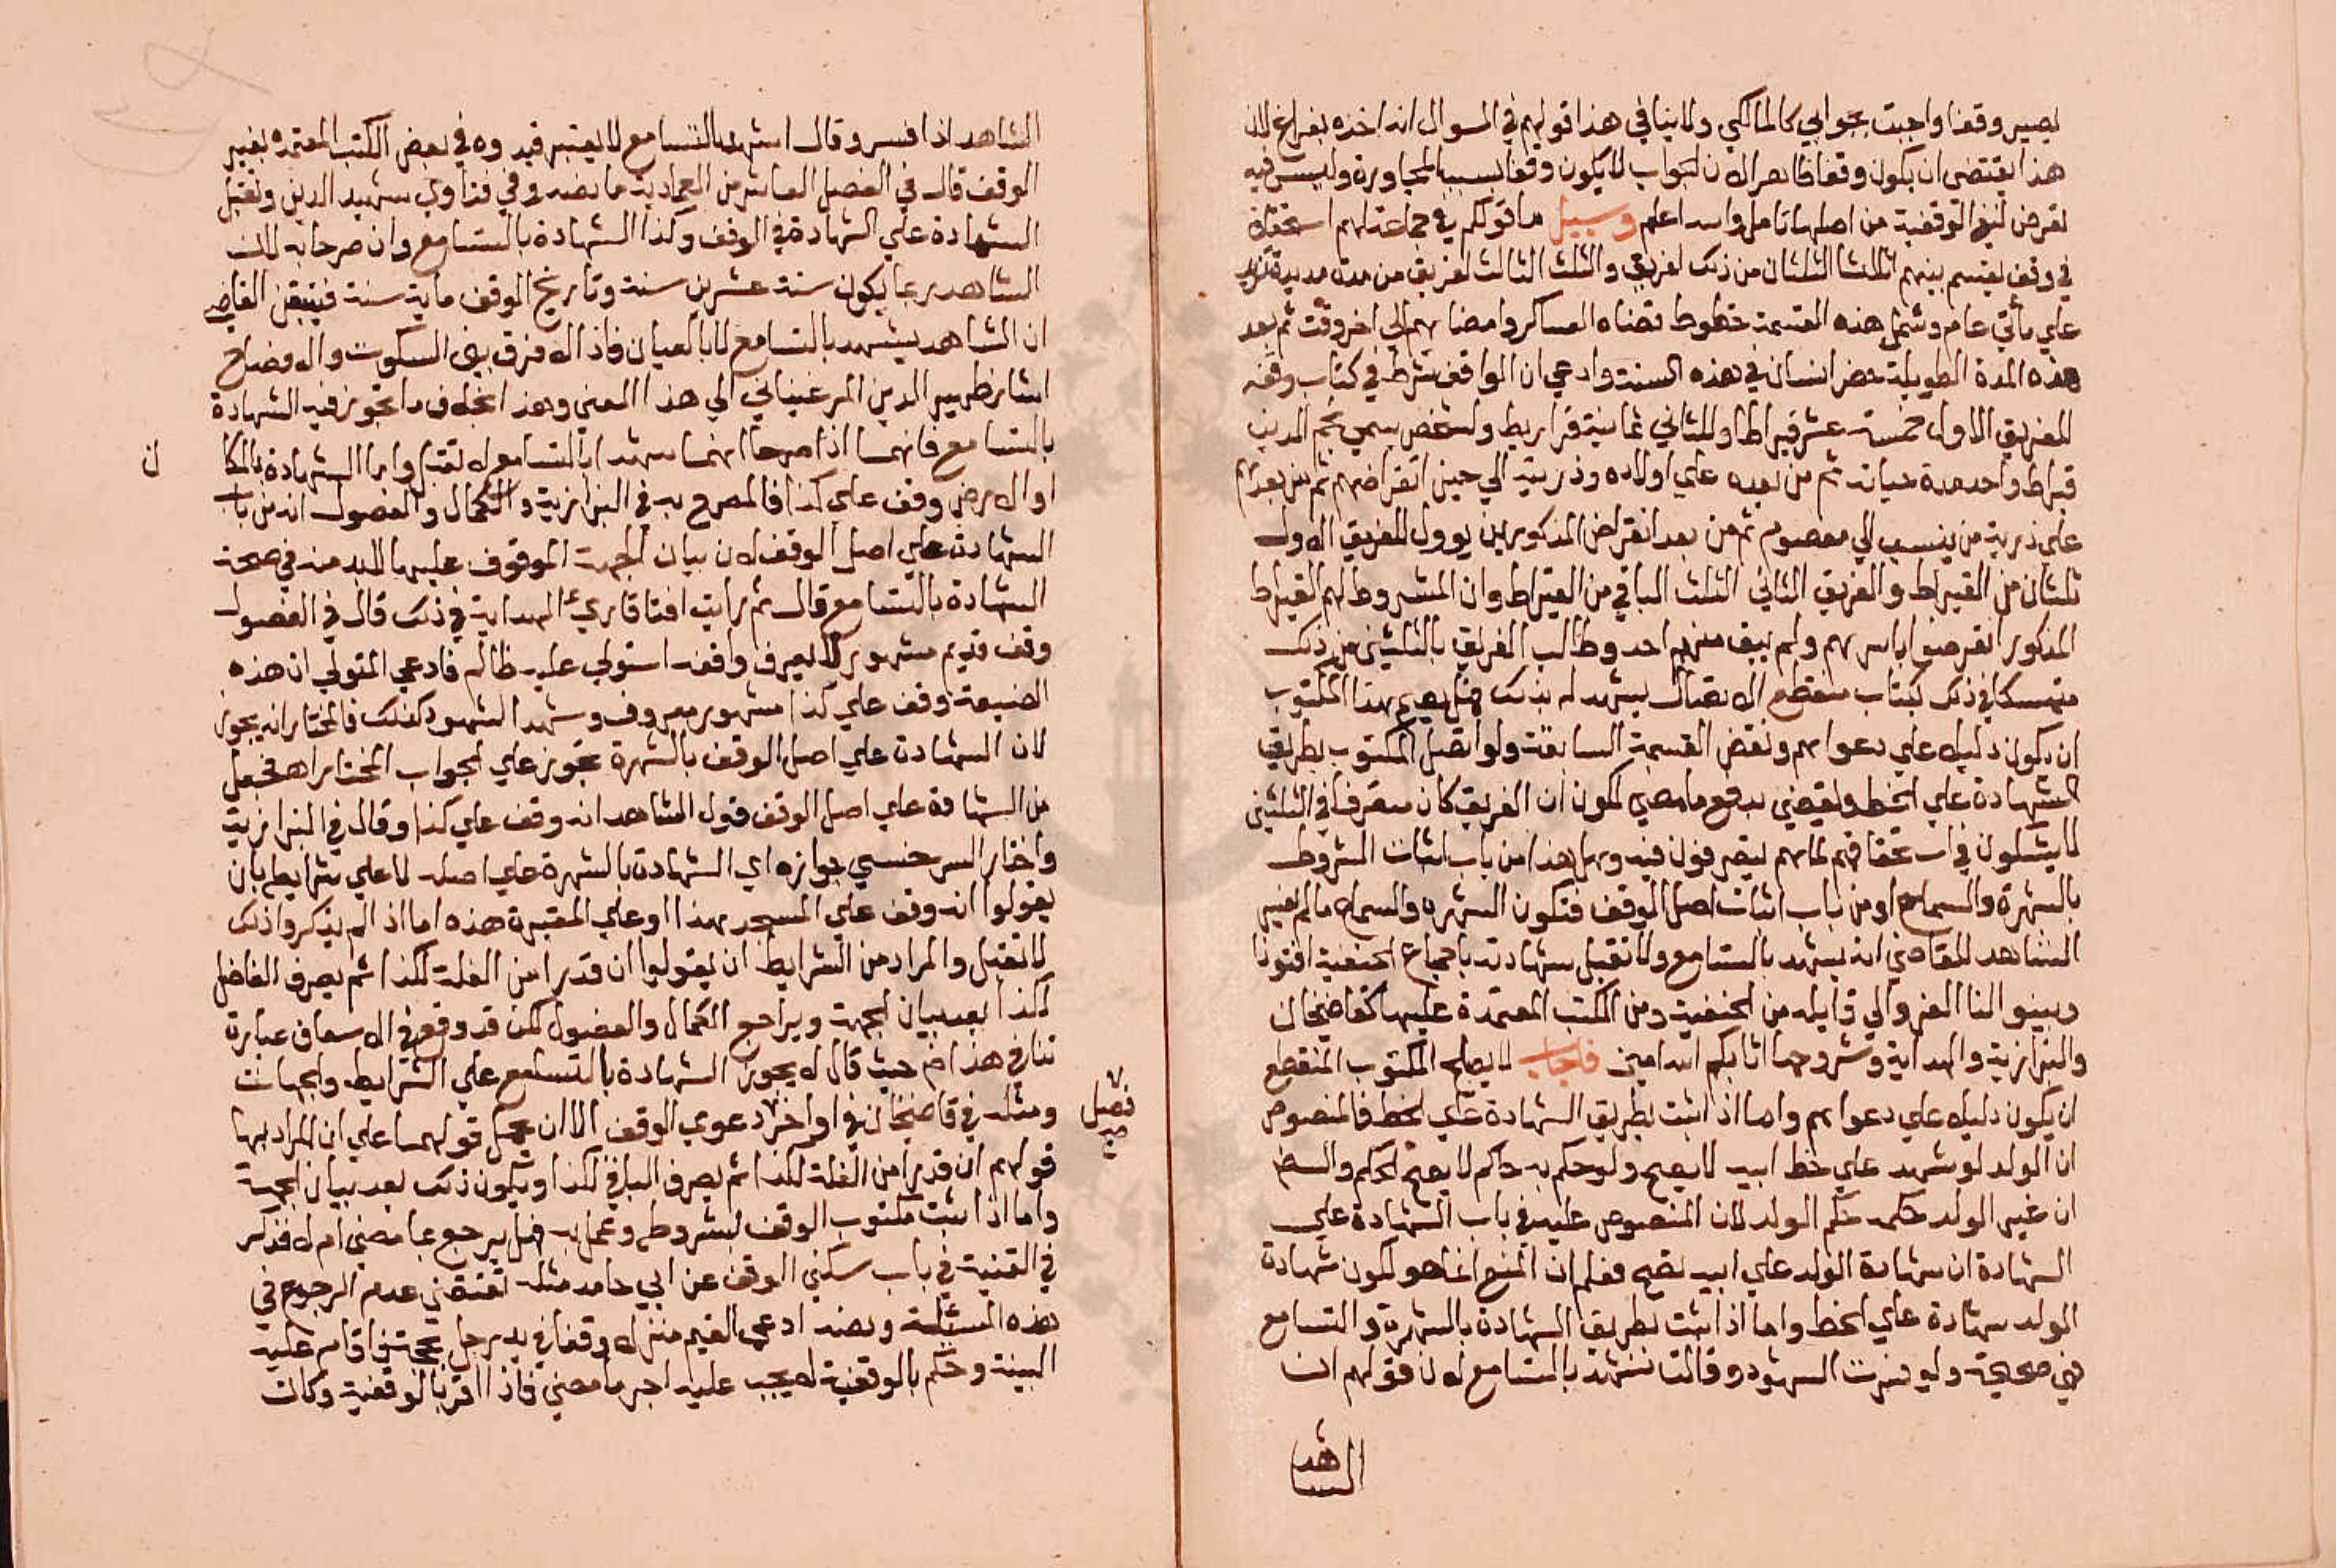 يصير وقفا واجبت بجوابي كالمالكي ولاينافي هذا قولهم في السوال انه اخذه بفراغ لان
هذا يقتضي ان يكون وقفا فالعر الان لجواب لا يكون وقفا بسبب المجاورة وليس فيه
تعرض لنفي الوقفية من اصلها تامل والله اعلم وسيل ما قولكم في جماعة لهم استحقاق
في وقف يقسم بينهم اثلاثا الثلثان من ذلك لفريق والثلث الثالث لفريق من مدة مديدة تزيد
علي مأتي عام وشمل هذه القسمة خطوط قضاه العساكر وامضاهم الي اخر وقت ثم بعد
هذه المدة الطويلة حضر انسان في هذه السنة وادعي ان الواقف شرط في كتاب وقفه
للفريق الاول خمسة عشر قيراطا وللثاني ثمانية قراريط ولشخص يسمي نجم الدين
قيراط واحد مدة حياته ثم من بعده علي اولاده وذريته الي حين انقراضهم ثم من بعدهم
علي ذرية من ينسب الي معصوم ثم من بعد انقراض المذكورين يوول للفريق الاول
ثلثان من القيراط والفريق الثاني الثلث الباقي من القيراط وان المشروط لهم القيراط
المذكور انقرضوا باسرهم ولم يبق منهم احد وطالب الفريق بالثلثين من ذلك
متمسكا في ذلك بكتاب منقطع الاتصال يشهد له بذلك فهل يصح هذا المكتوب
ان يكون دليلا علي دعواهم ونقض القسمة السابقة ولو اتصل المكتوب بطريق
الشهادة علي الخط ويقضي بدفع ما مضي لكون ان الفريق كان متصرفا في الثلثين
لا يشكون في استحقاقهم لها هم يتصرفون فيه وهل هذا من باب اثبات الشروط
بالشهرة والسماع او من باب اثبات اصل الوقف فتكون الشهره والسماع ما لم يفسر
الشاهد للقاضي انه يشهد بالتسامع ولا تقبل شهادته باجماع الحنفية افتونا
وبينوا لنا العزو الي قايله من الحنفية ومن الكتب المعتمدة عليها كقاضيخان
والبزازية والهداية وشروحها اثابكم الله امين فاجاب لا يصلح المكتوب المنقطع
ان يكون دليلا علي دعواهم واما اذا اثبت بطريق الشهادة علي الخط فالمنصوص
ان الولد لو شهد علي خط ابيه لا يصح ولو حكم به حاكم لا يصح الحكم والسفه
ان غير الولد حكمه حكم الولد لان المنصوص عليه في باب الشهادة علي
الشهادة ان شهادة الولد علي ابيه تصح فعلم ان المنع انما هو لكون شهادة
الولد شهادة علي الخط واما اذا اثبت بطريق الشهادة بالشهرة والتسامع
فهي صحيحة ولو فسرت الشهود وقالت نشهد بالتسامع لان قولهم ان
الشاهد
الشاهد اذا فسر وقال اشهد بالتسامع لا يعتبر قيده في بعض الكتب المعتمدة بغير
الوقف قال في الفصل العاشر من العمادية ما نصه وفي فتاوي رشيد الدين وتقبل
الشهادة علي الشهادة في الوقف وكذا الشهادة بالتسامع وان صرحا به لان
الشاهد ربما يكون سنه عشرين سنة وتاريخ الوقف ماية سنة فيتيقن القاضي
ان الشاهد يشهد بالتسامع لا بالعيان فاذا لا فرق بين السكوت والافصاح
اشار ظهير الدين المرغيناني الي هذا المعني وهذا بخلاف ما تجوز فيه الشهادة
بالتسامع فانهما اذا صرحا انهما شهدا بالتسامع لا تقبل واما الشهادة بالمكا ن
او الارض وقف علي كذا فالمصرح به في البزازية والكمال والفصول انه من باب
الشهادة علي اصل الوقف لان بيان الجهة الموقوف عليها لا بد منه في صحة
الشهادة بالتسامع قال ثم رايت افتا قاريء الهداية في ذلك قال في الفصول
وقف قديم مشهور لا يعرف واقفه استولي عليه ظالم فادعي المتولي ان هذه
الضيعة وقف علي كذا مشهور معروف وشهد الشهود كذلك فالمختار انه يجوز
لان الشهادة علي اصل الوقف بالشهرة تجوز علي الجواب المختار اه فجعل
من الشهادة علي اصل الوقف قول الشاهد انه وقف علي كذا وقال في البزازية
واختار السرخسي جوازه اي الشهادة بالشهرة علي اصله لا علي شرايطه بان
يقولوا انه وقف علي المسجد هذا او علي المقبرة هذه اما اذا لم يذكروا ذلك
لا تقبل والمراد من الشرايط ان يقولوا ان قدرا من الغلة لكذا ثم يصرف الفاضل
لكذا بعد بيان الجهة ويراجع الكمال والفصول لكن قد وقع في الاسعاف عبارة
تنافي هذا حيث قال لا يجوز الشهادة بالتسامع علي الشرايط والجهات
ومثله في قاضيخان في اواخر دعوي الوقف الا ان يحمل قولهما علي ان المراد بها
فصل صح
قولهم ان قدرا من الغلة لكذا ثم يصرف الباقي لكذا ويكون ذلك بعد بيان الجهة
واما اذا اثبت مكتوب الوقف بشروطه وعمل به فهل يرجع بما مضي ام لا فذكر
في القنية في باب سكني الوقف عن ابي حامد مثله تقتضي عدم الرجوع في
هذه المسئلة ونصه ادعي القيم منزلا وقفا في يد رجل بحجة فاقام عليه
البينة وحكم بالوقفية لا يجب عليه اجر ما مضي فاذا اقر بالوقفية وكان